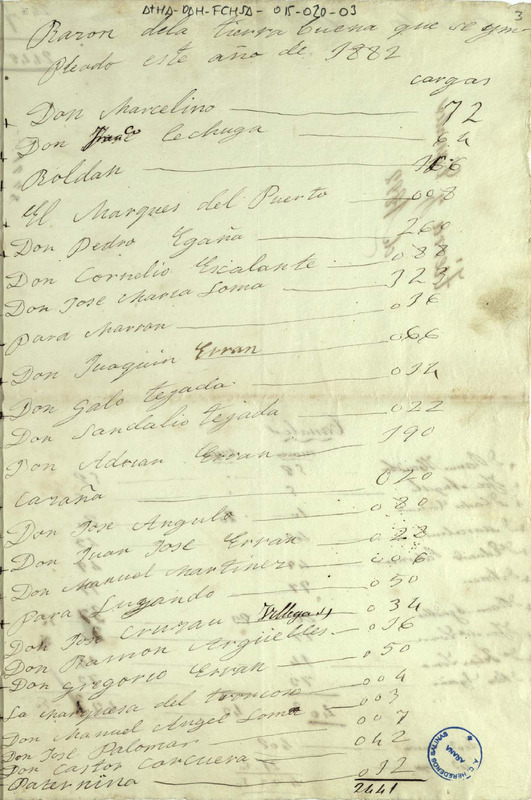 ATHA-DAH-FCHSA-015-020-03
3
Razon dela tierra buena que se ym-
pleado este año de 1882
cargas
Don Marcelino 72
Don Franco Lechuga 64
Roldan 166
El Marques del Puerto 008
Don Pedro Egaña 260
Don Cornelio Escalante 088
Don Jose Maria Loma 323
Para Marron 036
Don Juaquin Erran 066
Don Galo Tejada 034
Don Sandalio Tejada 022
Don Adrian Erran 190
Caraña 020
Don Jose Angulo 080
Don Juan Jose Erran 028
Don Manuel Martinez 006
Para Luzando 050
Don Jose Cruzau Villegas 034
Don Ramon Argüelles 016
Don Gregorio Erran 050
La Marquesa del 004
Don Manuel Angel Loma 003
Don Jose Palomar 007
Don Castor Corcuera 042
Paternina 012
2441
A.C. HEREDEROS SALINAS
AÑANA